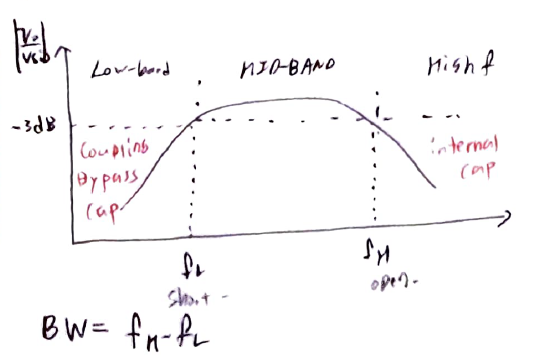 |Vo/Vsib|
Low-band MID-BAND High f
-3dB
Coupling
Bypass
Cap
internal
cap
fL
short -
fH
open -
BW = fH - fL